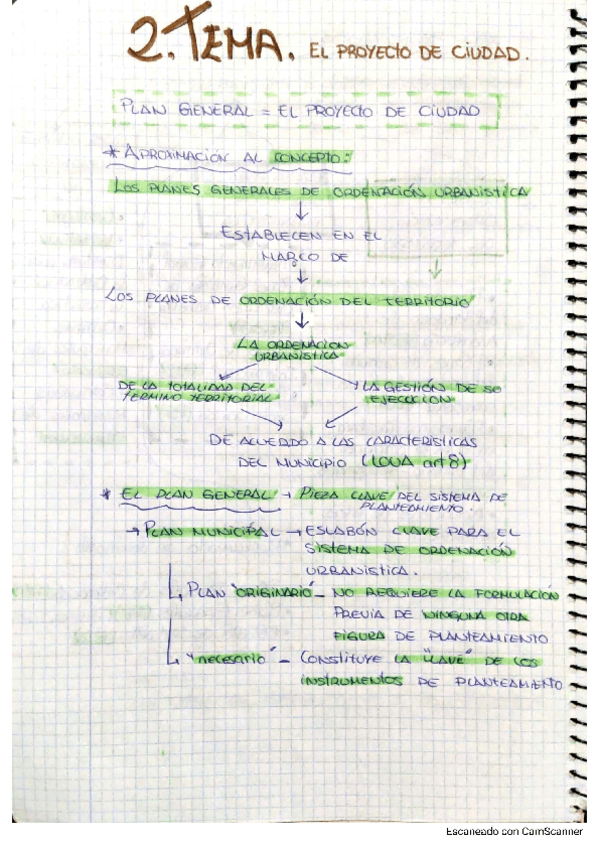 2. TEMA. EL PROYECTO DE CIUDAD.
PLAN GENERAL = EL PROYECTO DE CIUDAD
* APROXIMACIÓN AL CONCEPTO:
LOS PLANES GENERALES DE ORDENACIÓN URBANÍSTICA
↓
ESTABLECEN EN EL
MARCO DE
↓
LOS PLANES DE ORDENACIÓN DEL TERRITORIO
↓
LA ORDENACIÓN
URBANÍSTICA
DE LA TOTALIDAD DEL
TERMINO TERRITORIAL
LA GESTIÓN DE SU
EJECUCIÓN
DE ACUERDO A LAS CARACTERISTICAS
DEL MUNICIPIO (LOUA art 8)
* EL PLAN GENERAL: → PIEZA CLAVE DEL SISTEMA DE
PLANTEAMIENTO.
→ PLAN MUNICIPAL → ESLABÓN CLAVE PARA EL
SISTEMA DE ORDENACIÓN
URBANISTICA.
↳ PLAN "ORIGINARIO" - NO REQUIERE LA FORMULACIÓN
PREVIA DE NINGUNA OTRA
FIGURA DE PLANTEAMIENTO
↳ "necesario" - CONSTITUYE LA "LLAVE" DE LOS
INSTRUMENTOS DE PLANTEAMIENTO
Escaneado con CamScanner